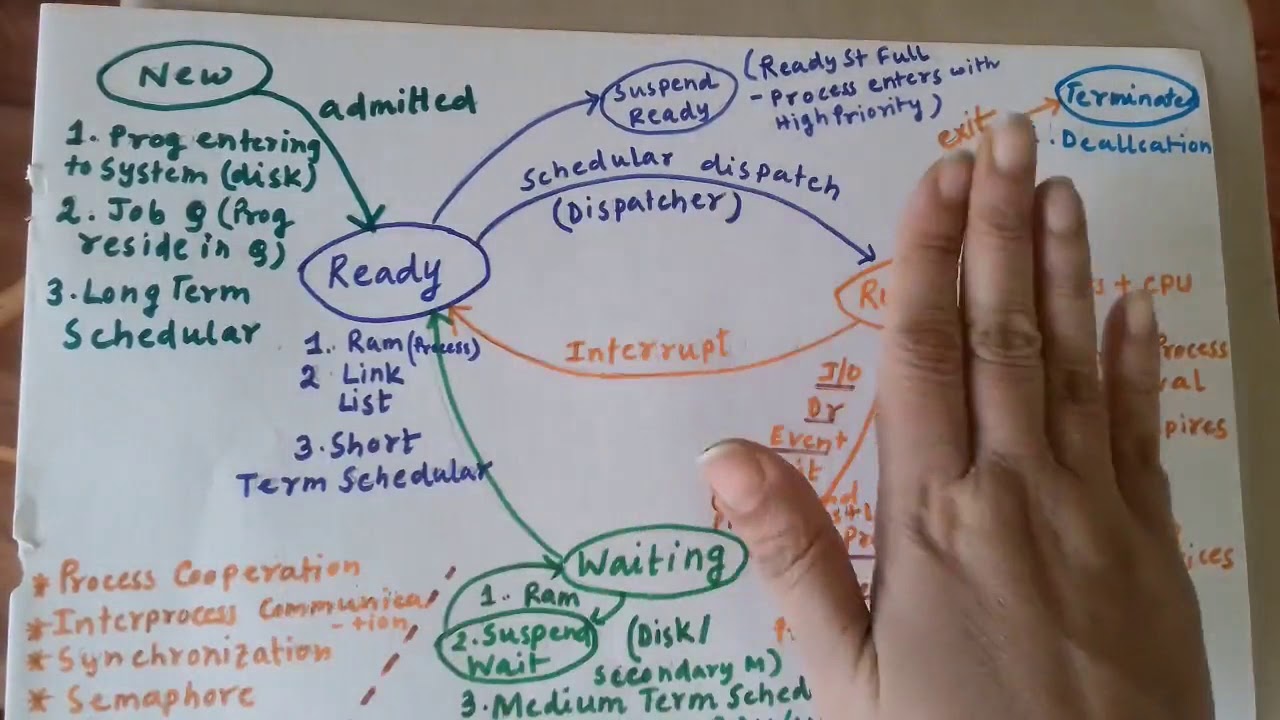 New
admitted
1. Prog entering
to System (disk)
2. Job q (Prog
reside in q)
3. Long Term
Schedular
Suspend
Ready
(Ready St Full
- Process enters with
High Priority)
exit
Terminate
Deallcation
Schedular dispatch
(Dispatcher)
Ready
Interrupt
1. Ram (Process)
2 Link
List
3. Short
Term Schedular
+ CPU
Process
I/O
Or
Event
Waiting
1. Ram
2. Suspend
Wait
(Disk/
Secondary M)
3. Medium Term Sched
* Process Cooperation
* Interprocess Communica
-tion
* Synchronization
* Semaphore